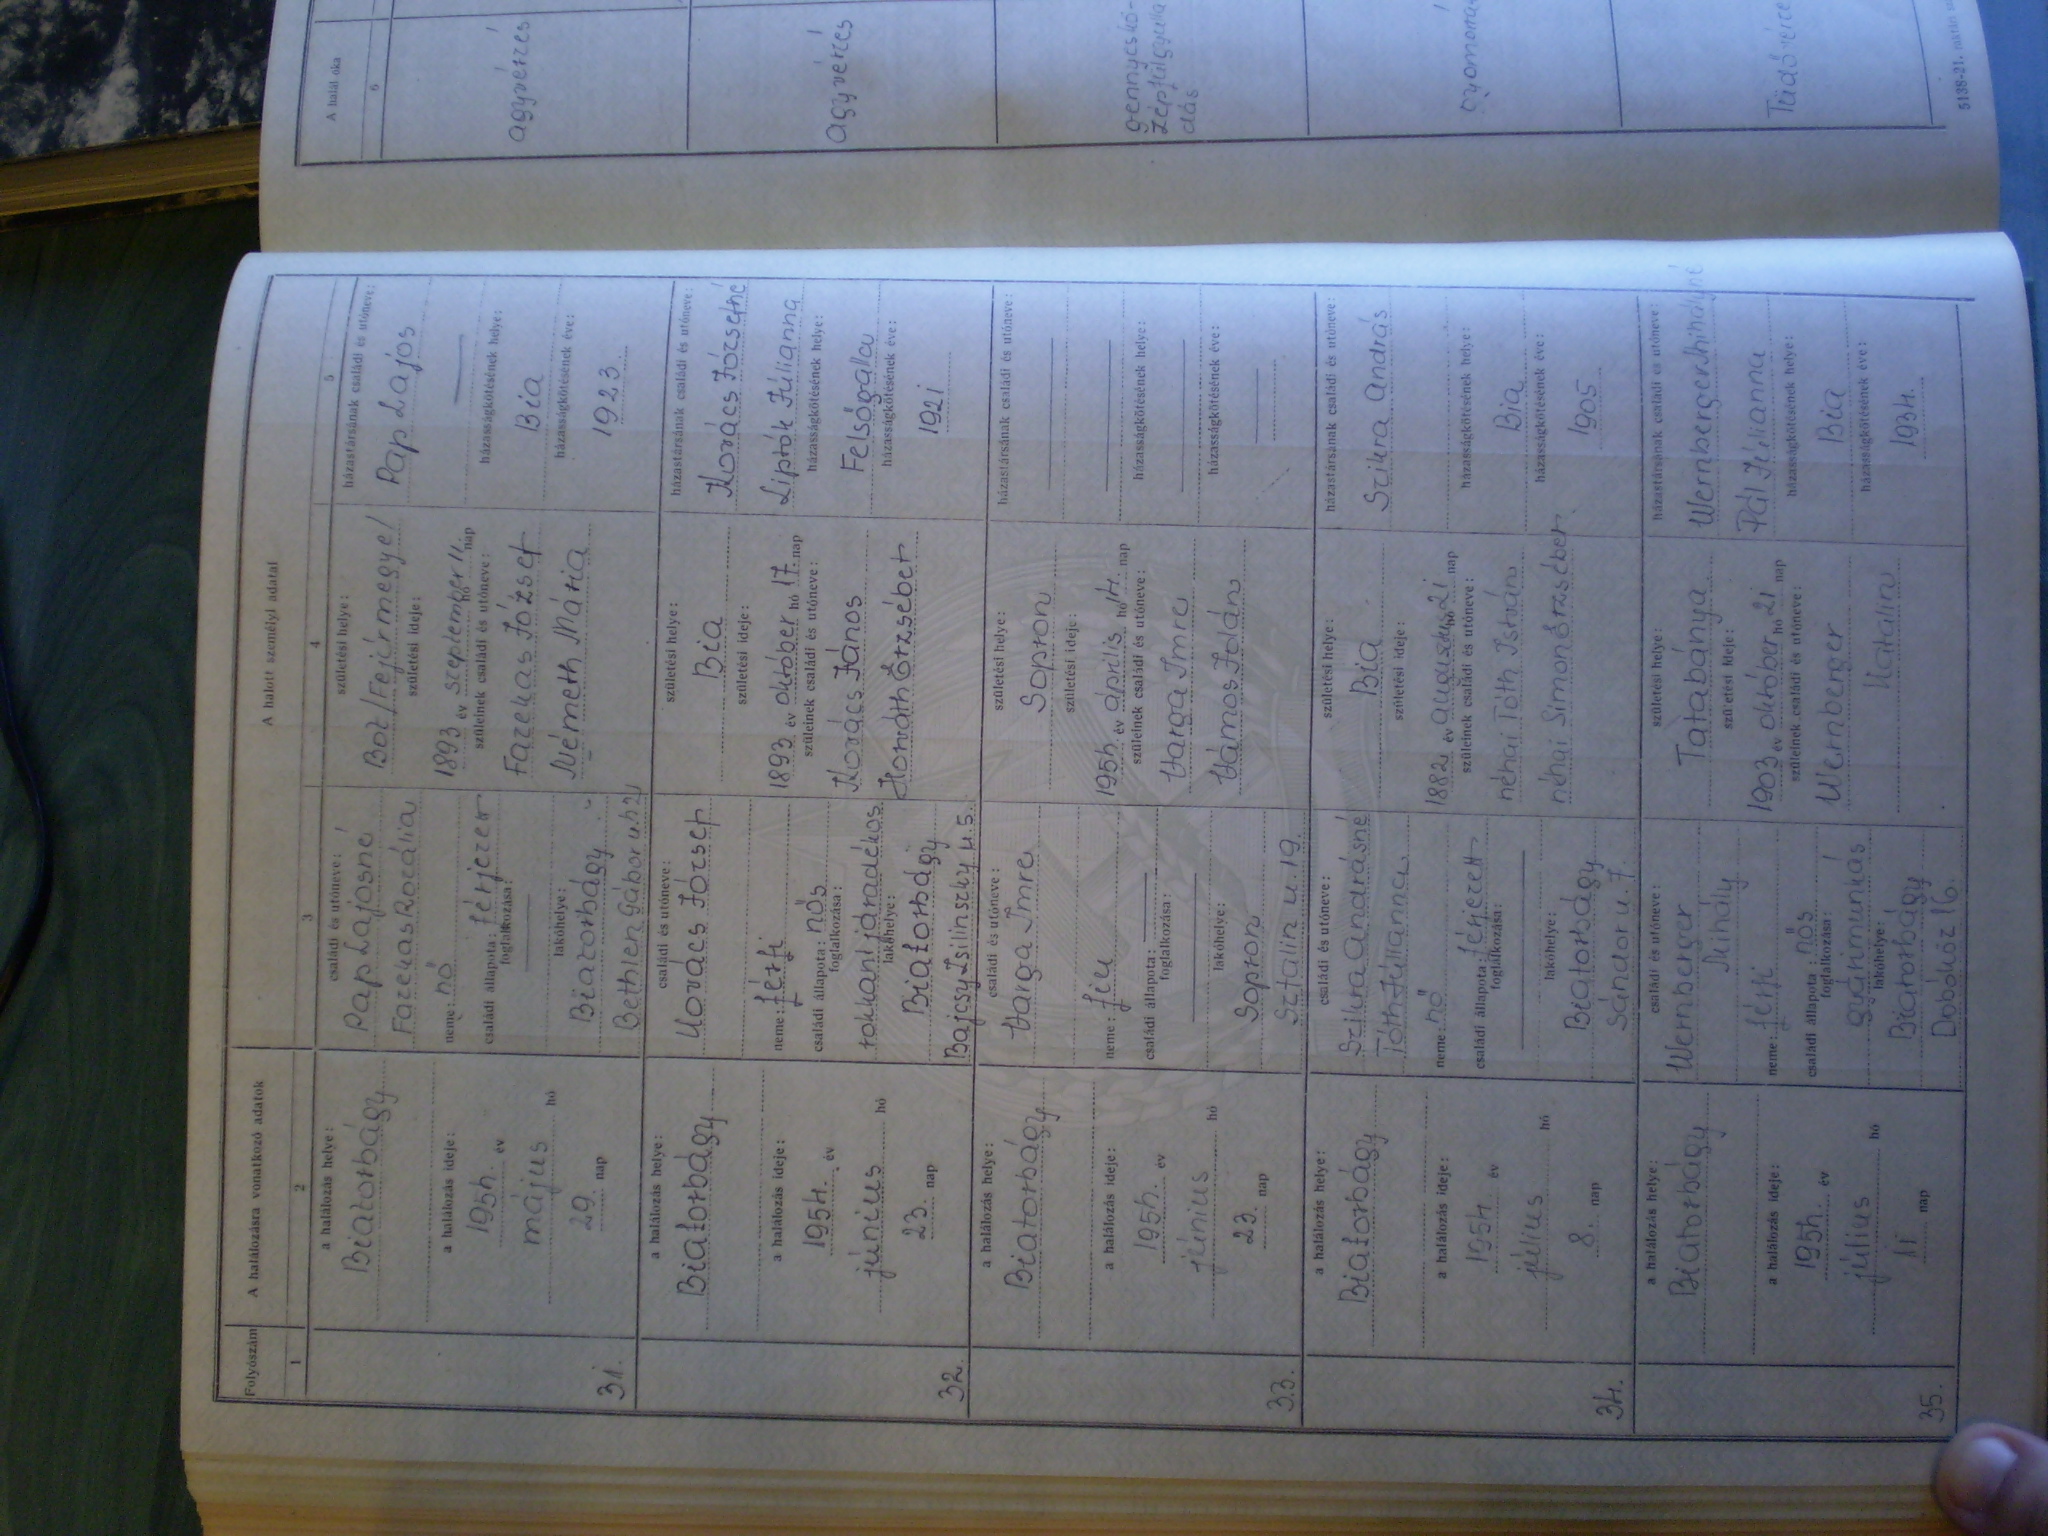 Folyószám
A halálozásra vonatkozó adatok
A halott személyi adatai
A halál oka
1
2
3
4
5
6
a halálozás helye:
Biatorbágy
a halálozás ideje:
1954. év
május hó
29. nap
családi és utóneve:
Pap Lajosné
Fazekas Rozália
neme: nő
családi állapota: férjezett
foglalkozása:
lakóhelye:
Biatorbágy
Bethlen Gábor u 42
születési helye:
Bot /Fejérmegye/
születési ideje:
1893 év szeptember hó 11. nap
szüleinek családi és utóneve:
Fazekas József
Németh Mária
házastársának családi és utóneve:
Pap Lajos
házasságkötésének helye:
Bia
házasságkötésének éve:
1923
agyvérzés
31.
a halálozás helye:
Biatorbágy
a halálozás ideje:
1954. év
június hó
23. nap
családi és utóneve:
Kovács József
neme: férfi
családi állapota: nős
foglalkozása:
rokkant járadékos
lakóhelye:
Biatorbágy
Bajcsy Zsilinszky u. 5.
születési helye:
Bia
születési ideje:
1893 év október hó 17. nap
szüleinek családi és utóneve:
Kovács János
Horváth Erzsébet
házastársának családi és utóneve:
Kovács Józsefné
Liptók Júlianna
házasságkötésének helye:
Felsőgalla
házasságkötésének éve:
1921
agyvérzés
32.
a halálozás helye:
Biatorbágy
a halálozás ideje:
1954. év
június hó
23. nap
családi és utóneve:
Varga Imre
neme: fiu
családi állapota:
foglalkozása:
lakóhelye:
Sopron
Sztalin u. 19.
születési helye:
Sopron
születési ideje:
1954. év április hó 14. nap
szüleinek családi és utóneve:
Varga Imre
Vámos Jolán
házastársának családi és utóneve:
házasságkötésének helye:
házasságkötésének éve:
gennyes kö-
zépfülgyulla
dás
33.
a halálozás helye:
Biatorbágy
a halálozás ideje:
1954. év
július hó
8. nap
családi és utóneve:
Szikra Andrásné
Tóth Júlianna
neme: nő
családi állapota: férjezett
foglalkozása:
lakóhelye:
Biatorbágy
Sándor u. 7.
születési helye:
Bia
születési ideje:
1882 év augusztus hó 21 nap
szüleinek családi és utóneve:
néhai Tóth István
néhai Simon Erzsébet
házastársának családi és utóneve:
Szikra András
házasságkötésének helye:
Bia
házasságkötésének éve:
1905
34.
a halálozás helye:
Biatorbágy
a halálozás ideje:
1954. év
július hó
11 nap
családi és utóneve:
Wernberger
Mihály
neme: férfi
családi állapota: nős
foglalkozása:
gyárimunkás
lakóhelye:
Biatorbágy
Dobóköz 16.
születési helye:
Tatabánya
születési ideje:
1903 év október hó 21 nap
szüleinek családi és utóneve:
Wernberger
Katalin
házastársának családi és utóneve:
Wernberger Mihályné
Pál Júlianna
házasságkötésének helye:
Bia
házasságkötésének éve:
1934.
35.
5138-21.